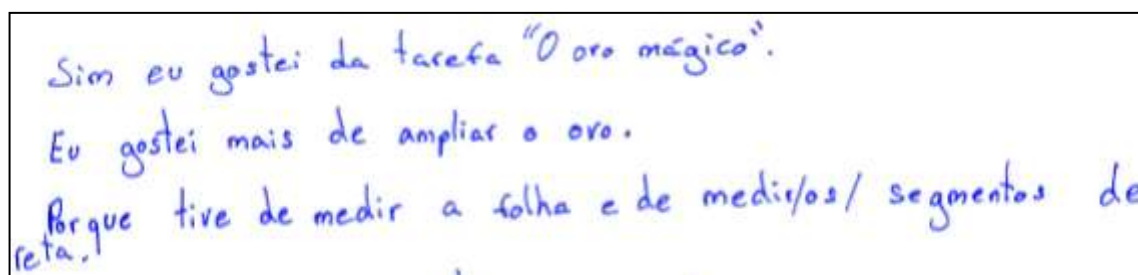 Sim eu gostei da tarefa "O ovo mágico".
Eu gostei mais de ampliar o ovo.
Porque tive de medir a folha e de medir/os/ segmentos de
reta.